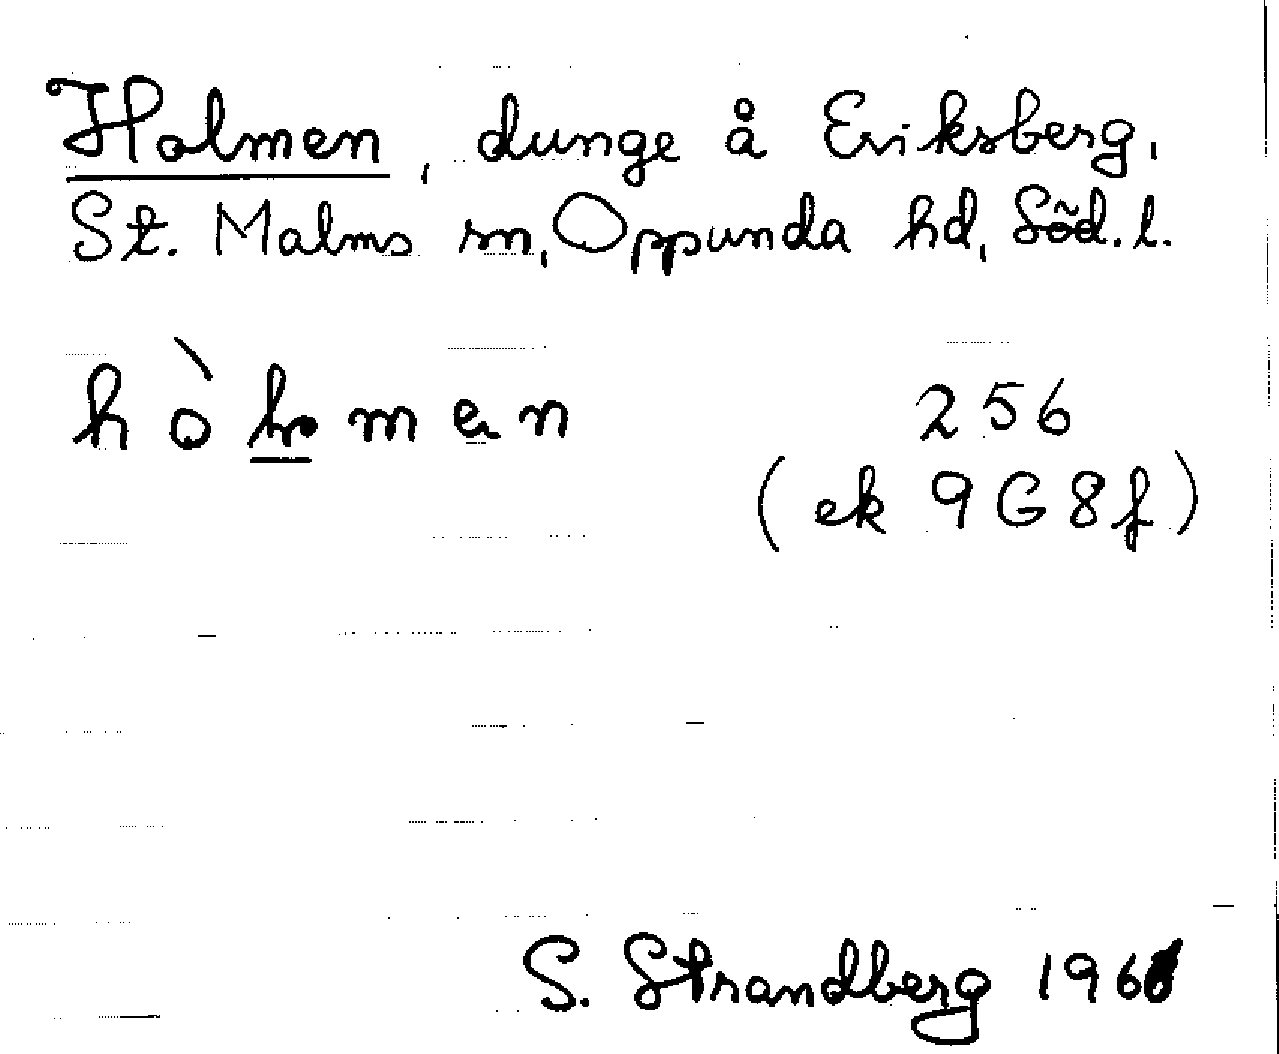 Holmen, dunge å Eriksberg,
St. Malms sn, Oppunda hd, Söd. l.
256
(ek 9G8f)
S. Strandberg